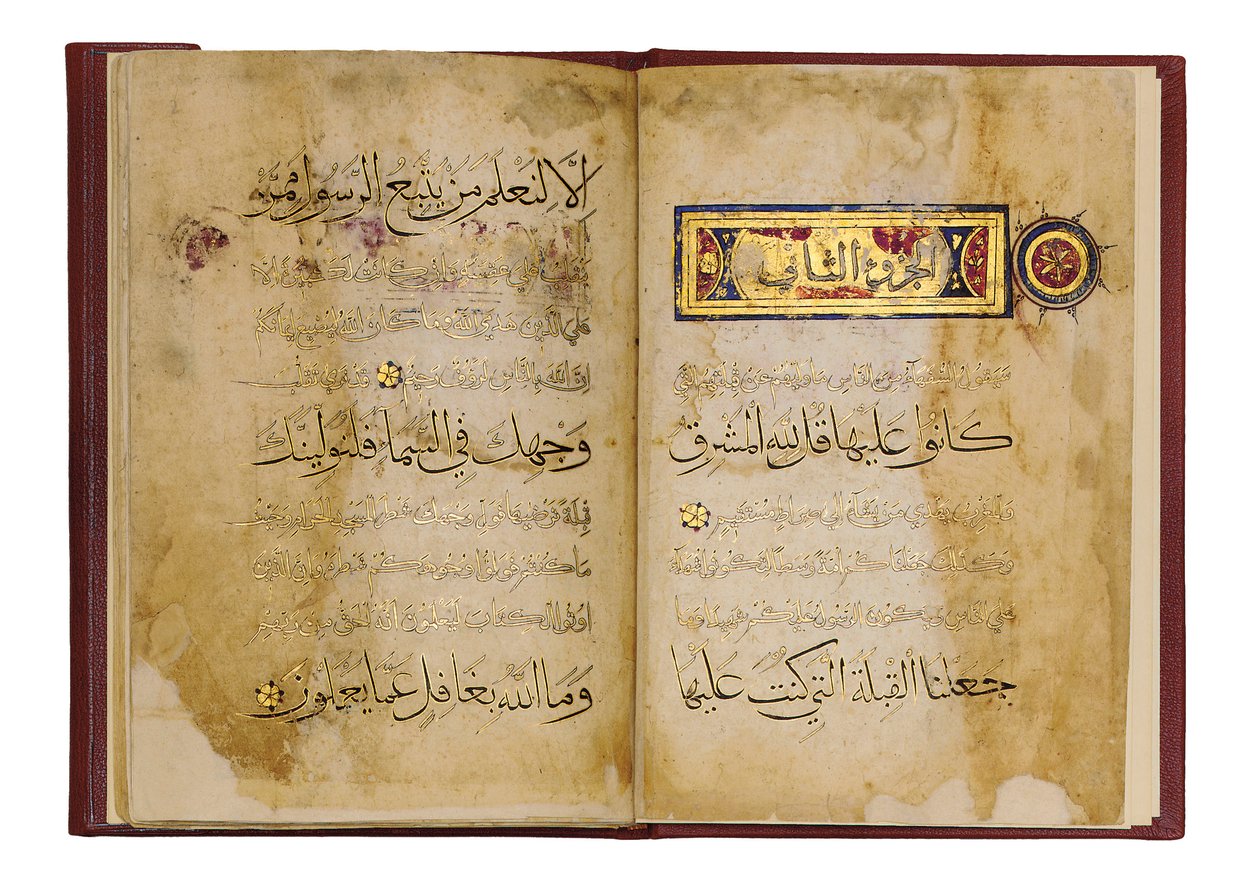 الجزوء الثاني
سَيَقُولُ السُّفَهَآءُ مِنَ النَّاسِ مَا وَلّٰيهُمْ عَنْ قِبْلَتِهِمُ الَّتِي
كَانُوا عَلَيْهَا قُلْ لِلّٰهِ الْمَشْرِقُ
وَالْمَغْرِبُ يَهْدِي مَنْ يَشَآءُ اِلَي صِرَاطٍ مُسْتَقِيمٍ
وَكَذَلِكَ جَعَلْنَاكُمْ اُمَّةً وَسَطًا لِتَكُونُوا شُهَدَآءَ
عَلَي النَّاسِ وَيَكُونَ الرَّسُولُ عَلَيْكُمْ شَهِيدًا وَمَا
جَعَلْنَا الْقِبْلَةَ الَّتِي كُنْتَ عَلَيْهَا
اِلَّا لِنَعْلَمَ مَنْ يَتَّبِعُ الرَّسُولَ مِمَّنْ
يَنْقَلِبُ عَلَي عَقِبَيْهِ وَاِنْ كَانَتْ لَكَبِيرَةً اِلَّا
عَلَي الَّذِينَ هَدَي اللّٰهُ وَمَا كَانَ اللّٰهُ لِيُضِيعَ اِيمَانَكُمْ
اِنَّ اللّٰهَ بِالنَّاسِ لَرَؤُفٌ رَحِيمٌ قَدْ نَرَي تَقَلُّبَ
وَجْهِكَ فِي السَّمَآءِ فَلَنُوَلِّيَنَّكَ
قِبْلَةً تَرْضَيهَا فَوَلِّ وَجْهَكَ شَطْرَ الْمَسْجِدِ الْحَرَامِ وَحَيْثُ
مَا كُنْتُمْ فَوَلُّوا وُجُوهَكُمْ شَطْرَهُ وَاِنَّ الَّذِينَ
اُوتُوا الْكِتَابَ لَيَعْلَمُونَ اَنَّهُ الْحَقُّ مِنْ رَبِّهِمْ
وَمَا اللّٰهُ بِغَافِلٍ عَمَّا يَعْمَلُونَ